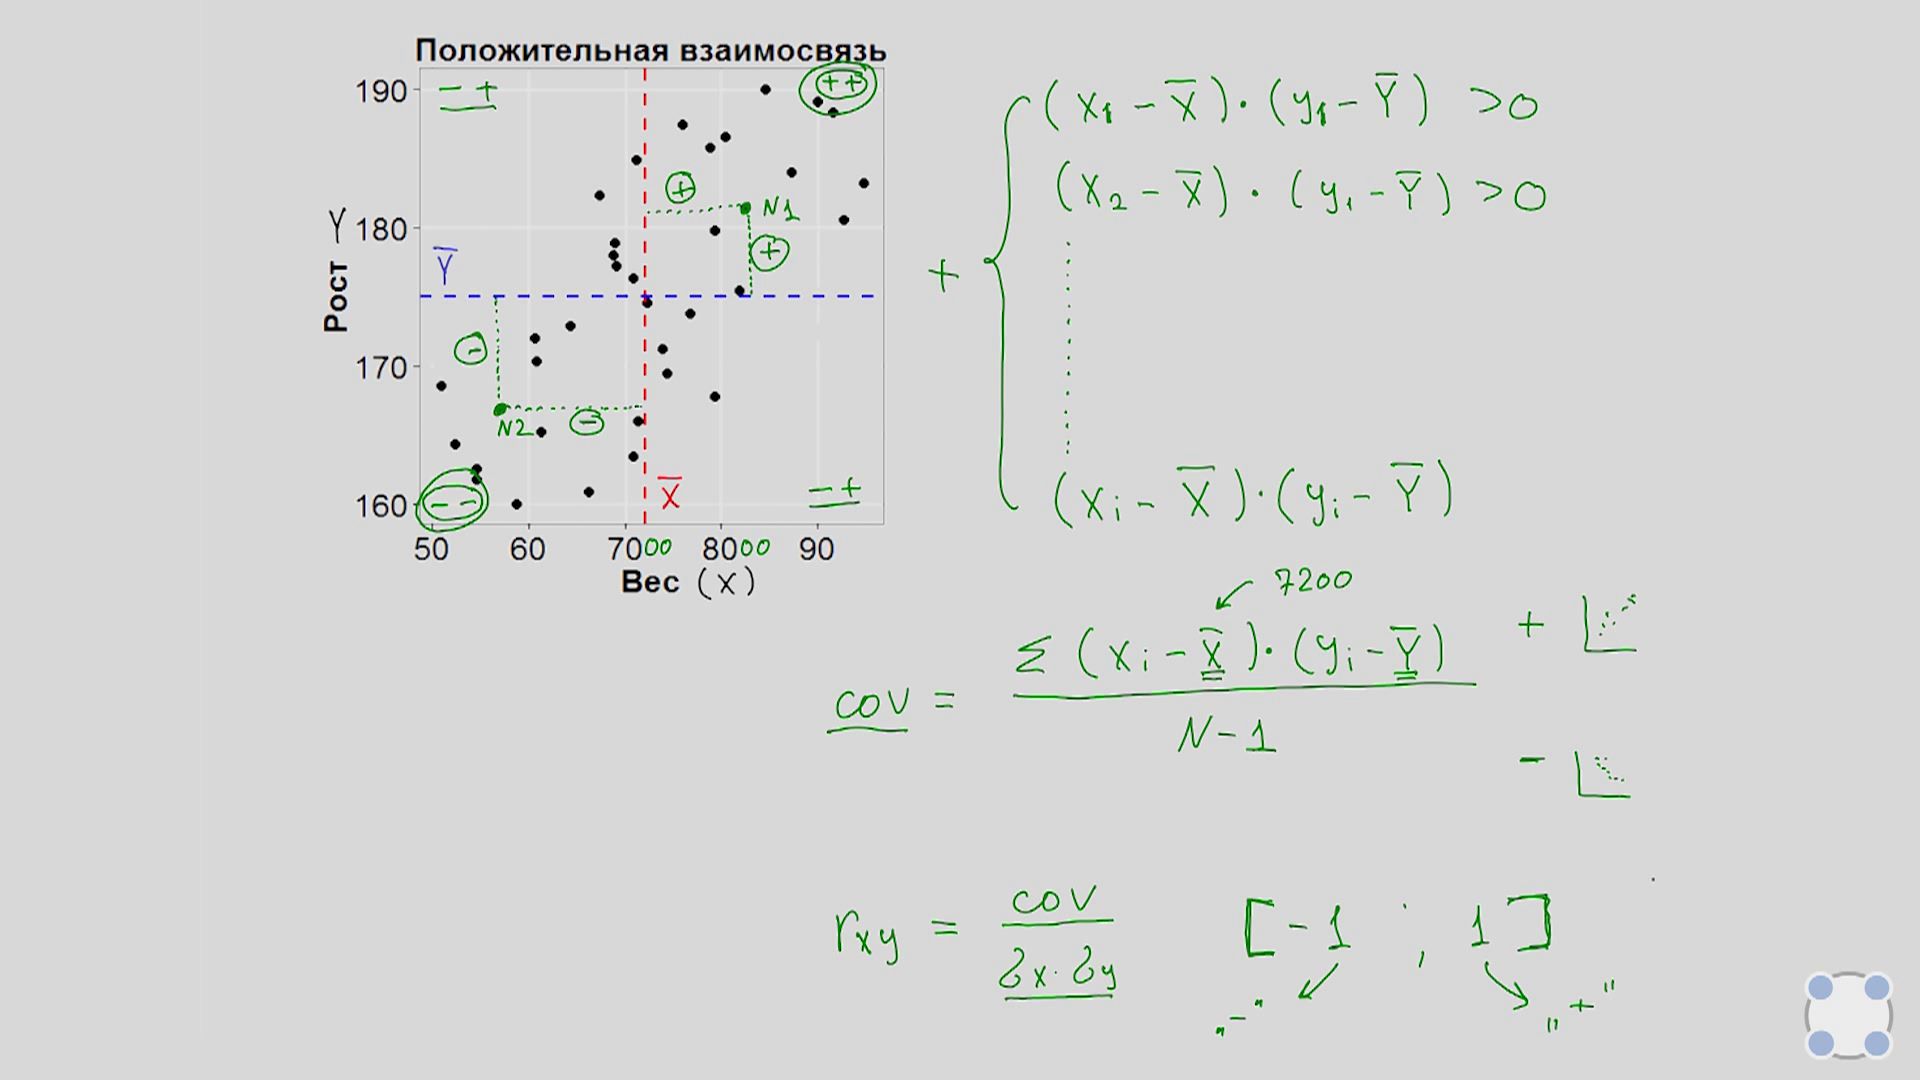 Положительная взаимосвязь
190
180
170
160
Рост Y
50 60 7000 8000 90
Вес (X)
- +
+ +
+
N1
+
Y̅
-
N2
-
- -
X̅
- +
(x₁ - X̅) · (y₁ - Y̅) >0
(x₂ - X̅) · (y₁ - Y̅) >0
+
(xᵢ - X̅) · (yᵢ - Y̅)
7200
cov = Σ (xᵢ - X̅) · (yᵢ - Y̅)
N - 1
+
-
rxy = cov
бx · бy
[ - 1 ; 1 ]
„-" „+"